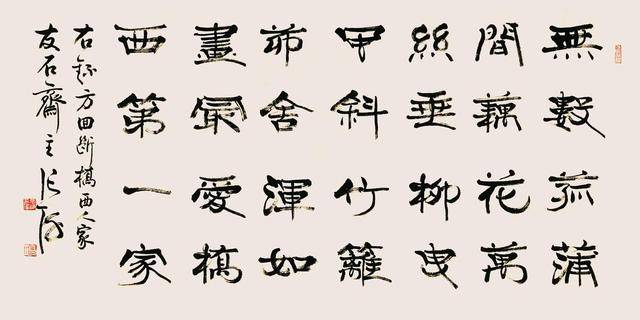 無數菰蒲
間藕花萬
絲垂柳曳
斜竹籬
茆舍渾如
畫最愛橋
西第一家
右錄方回斷橋西人家
友石齋主